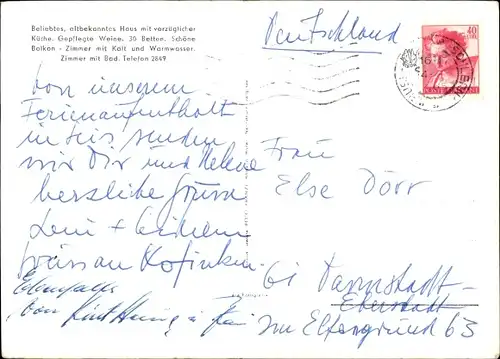 Beliebtes, altbekanntes Haus mit vorzüglicher
Küche. Gepflegte Weine. 36 Betten. Schöne
Balkon - Zimmer mit Kalt und Warmwasser.
Zimmer mit Bad. Telefon 2849
Deutschland
40
Von unserem
Ferienaufenthalt
in Seis senden
wir Dir und Helene
herzliche Grüsse
Leni +
Ebenfalls
von Kurt
Frau
Else Dörr
61 Darmstadt-
Eberstadt
Im Elfengrund 63